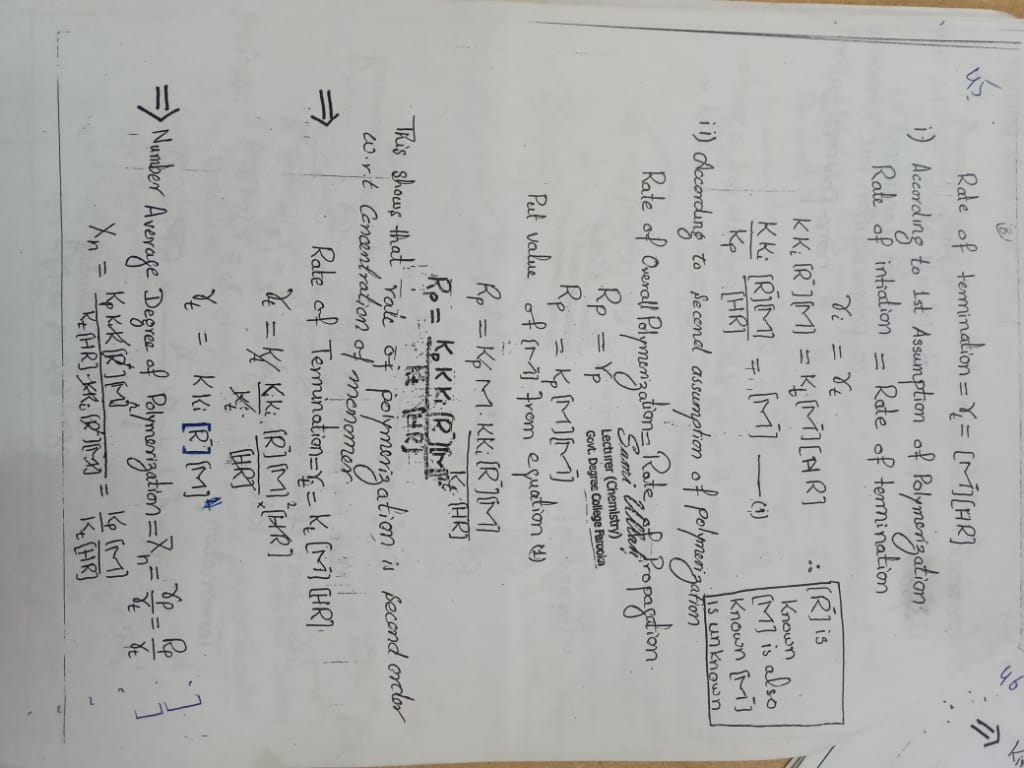 45.
Rate of termination = r_t = [M̄][HR]
i) According to 1st Assumption of Polymerization
Rate of intiation = Rate of termination
r_i = r_t
KK_i [R̄][M] = K_t [M̄][HR]
∴ [R̄] is
Known
[M] is also
Known [M̄]
is unknown
KK_i/K_p [R̄][M]/[HR] = [M̄] — (1)
ii) According to second assumption of Polymerization
Rate of Overall Polymerization = Rate of Propagation.
Lecturer (Chemistry)
Govt. Degree College Parooia
R_p = r_p
R_p = K_p [M][M̄]
Put value of [M̄] from equation (1)
R_p = K_p M . KK_i [R̄][M]/K_t [HR]
R_p = K_p KK_i [R̄][M]²/K_t [HR]
This shows that rate of polymerization is second order
w.r.t Concentration of monomer
⇒ Rate of Termination = r_t = K_t [M̄] [HR]
r_t = K_t KK_i [R̄][M]² [HR]/K_t [HR]
r_t = KK_i [R̄] [M]
⇒ Number Average Degree of Polymerization = X̄_n = r_p/r_t = R_p/r_t
X_n = K_p KK_i [R̄] [M]²/K_t [HR] KK_i [R̄][M] = K_p [M]/K_t [HR]
46
⇒